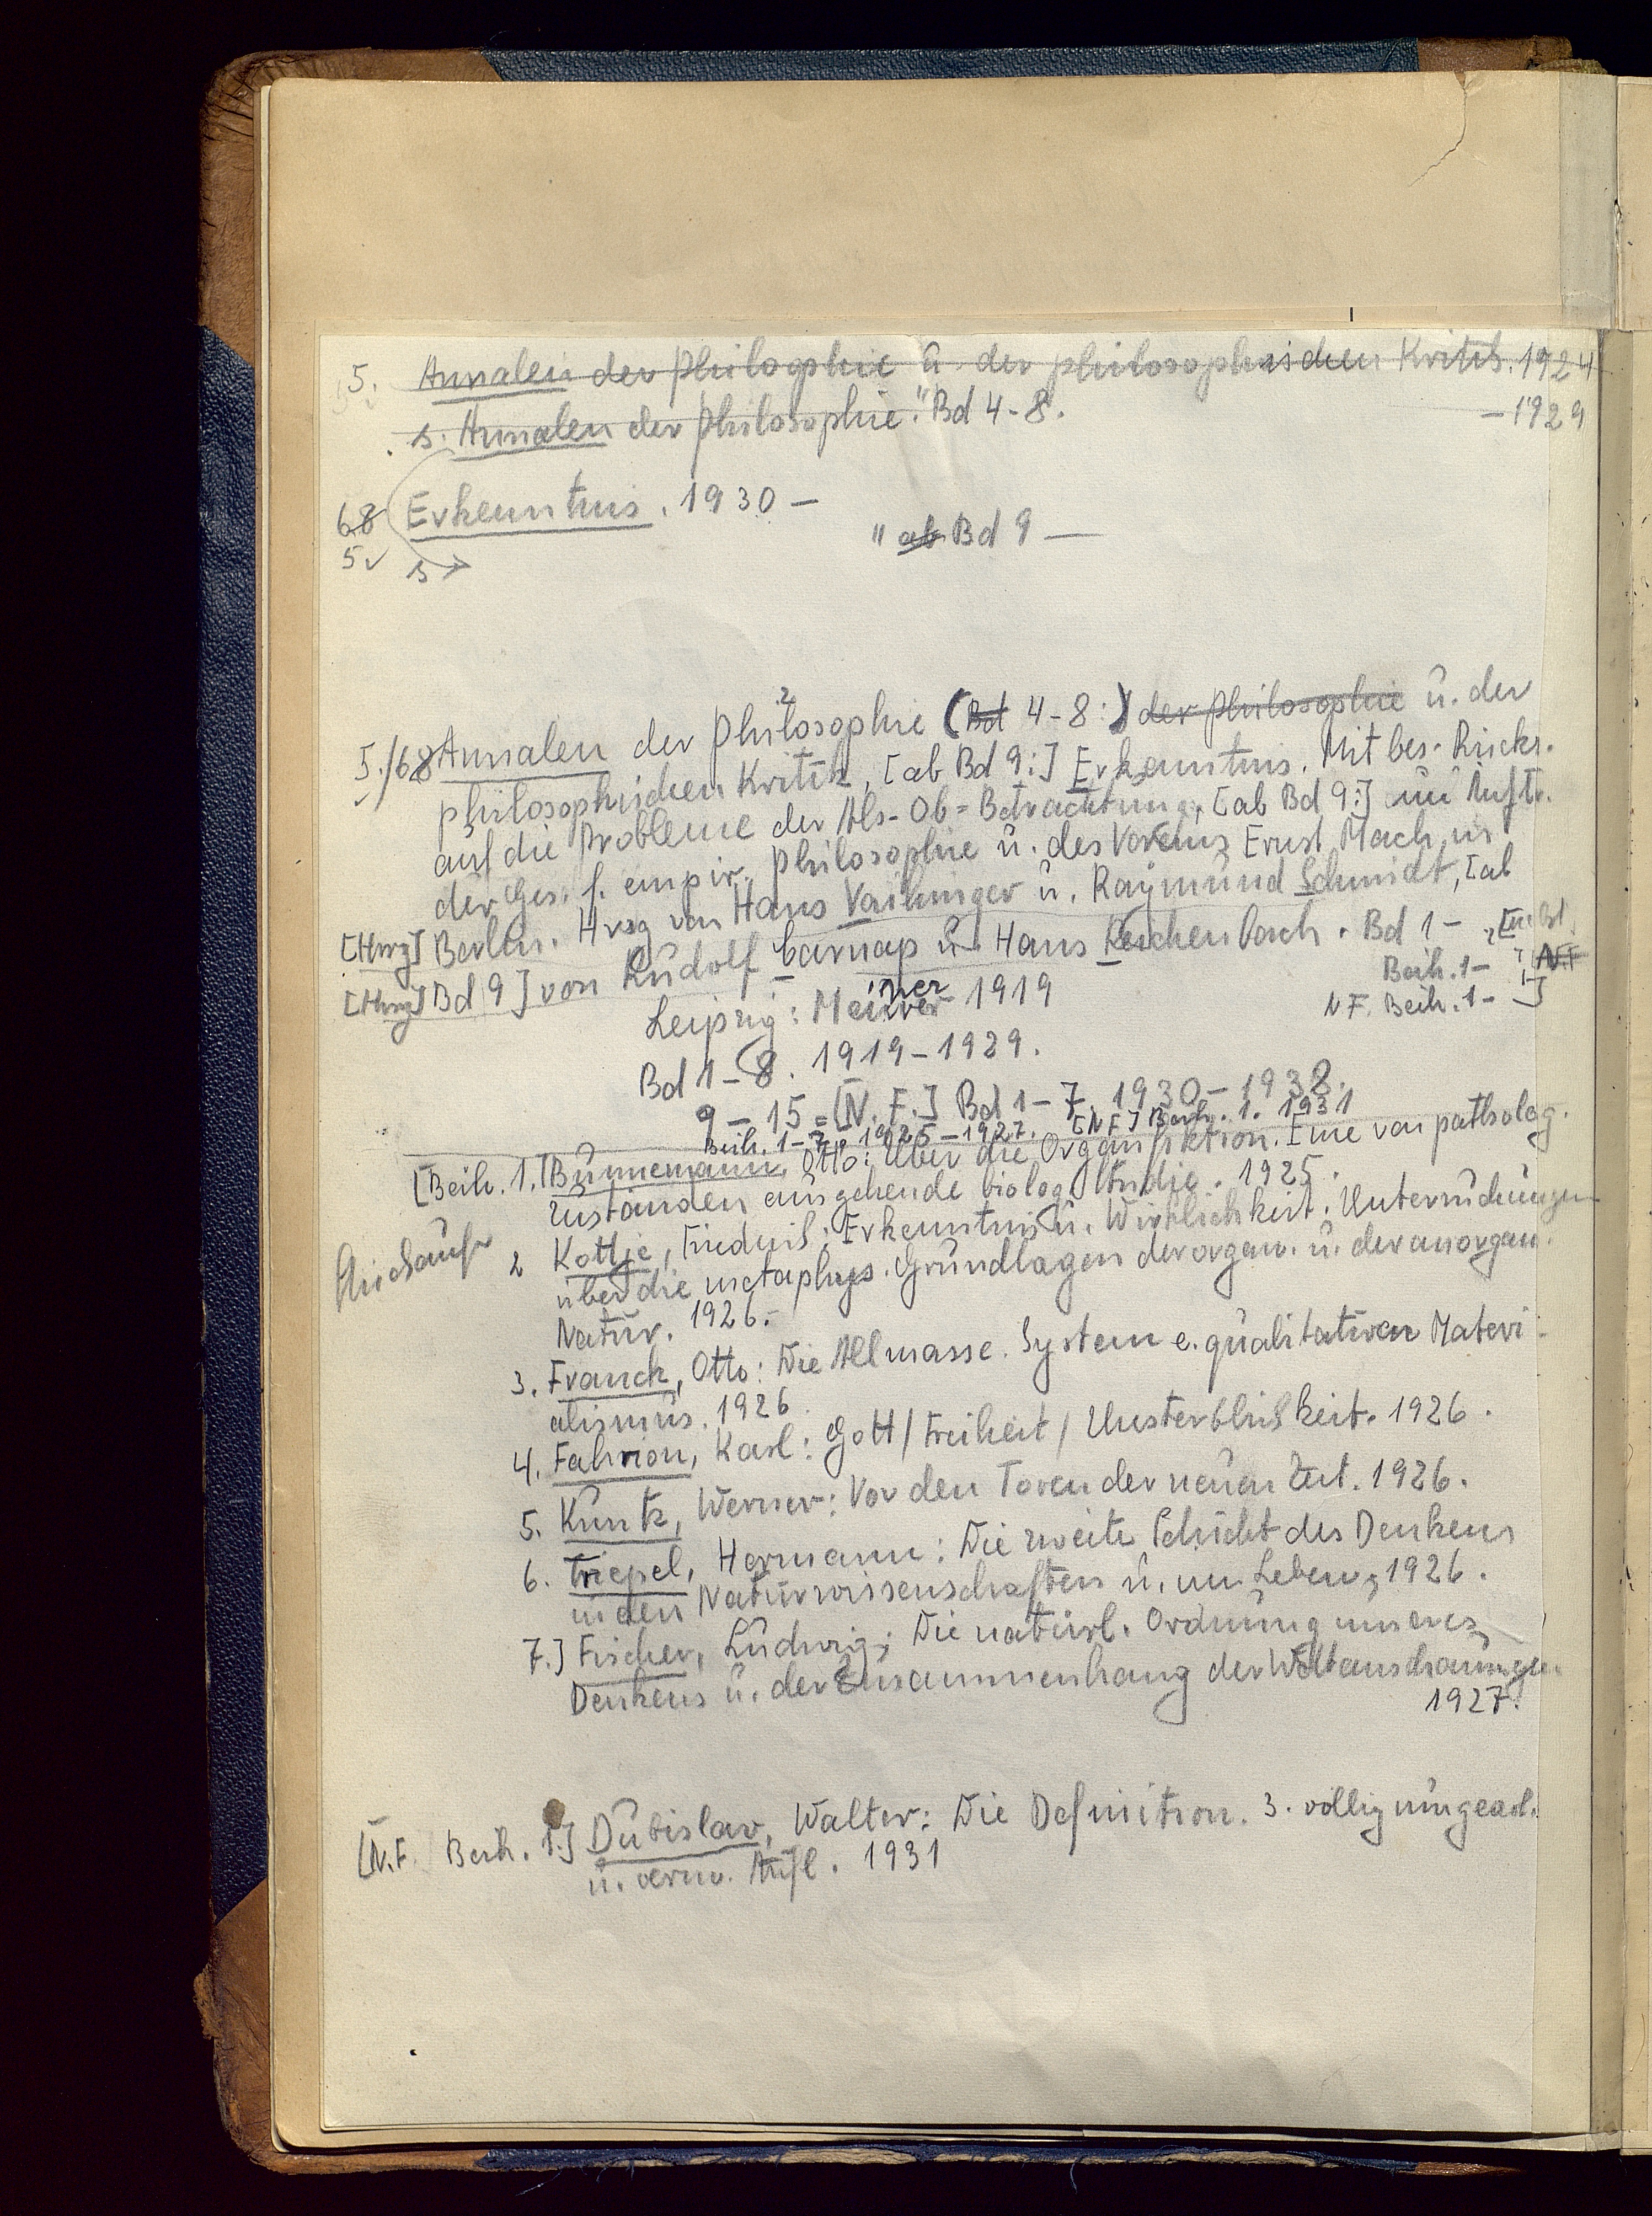 5. Annalen der Philosophie u. der philosophischen Kritik. 1924
s. Annalen der Philosophie." Bd 4-8. -1929
68 Erkenntnis. 1930 -
" ab Bd 9 -
5 s →
5./68 Annalen der Philosophie (Bd 4-8:) der Philosophie u. der
philosophischen Kritik, [ab Bd 9:] Erkenntnis. Mit bes. Rücks.
auf die Probleme der Als-Ob-Betrachtung, [ab Bd 9:] im Auftr.
der Ges. f. empir. Philosophie u. des Vereins Ernst Mach in
[Hrsg] Berlin. Hrsg von Hans Vaihinger u. Raymund Schmidt, [ab
[Hrsg] Bd 9] von Rudolf Carnap u. Hans Reichenbach. Bd 1-
Beih. 1- N.F.
N F. Beih. 1- ]
Leipzig: Meiner 1919
Bd 1-8. 1919-1929.
9-15=[N.F.] Bd 1-7. 1930-1938.
Beih. 1-7. 1925-1927. [N F] Beih. 1. 1931
[Beih. 1.] Bunnemann, Otto: Über die Organfiktion. Eine von patholog.
Zuständen ausgehende biolog. Studie. 1925.
2 Kottje, Friedrich: Erkenntnis u. Wirklichkeit. Untersuchungen
über die metaphys. Grundlagen der organ. u. der anorgan.
Natur. 1926.
3. Franck, Otto: Die Allmasse. System e. qualitativen Materi-
alismus. 1926.
4. Fahrion, Karl: Gott/Freiheit/Unsterblichkeit. 1926.
5. Kuntz, Werner: Vor den Toren der neuen Zeit. 1926.
6. Triepel, Hermann: Die zweite Schicht des Denkens
in den Naturwissenschaften u. im Leben, 1926.
7.] Fischer, Ludwig: Die natürl. Ordnung unseres
Denkens u. der Zusammenhang der Weltanschauungen
1927.
[N.F. Beih. 1.] Dubislav, Walter: Die Definition. 3. völlig umgearb.
u. verm. Aufl. 1931